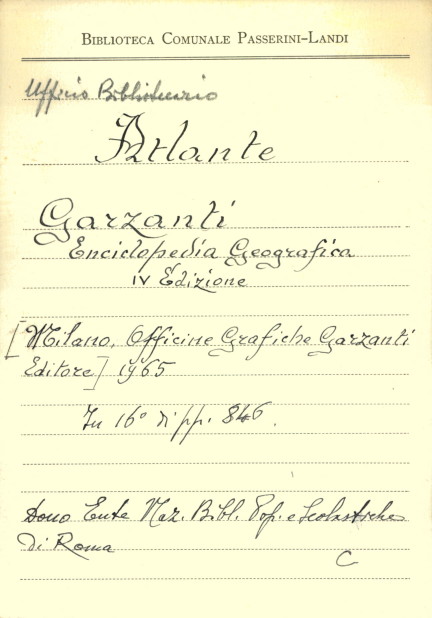 BIBLIOTECA COMUNALE PASSERINI-LANDI
Ufficio Bibliotecario
Atlante
Garzanti
Enciclopedia Geografica
IV Edizione
[Milano, Officine Grafiche Garzanti
Editore] 1965
In 16° di pp. 846.
Dono Ente Naz. Bibl. Pop. e Scolastiche
di Roma
C